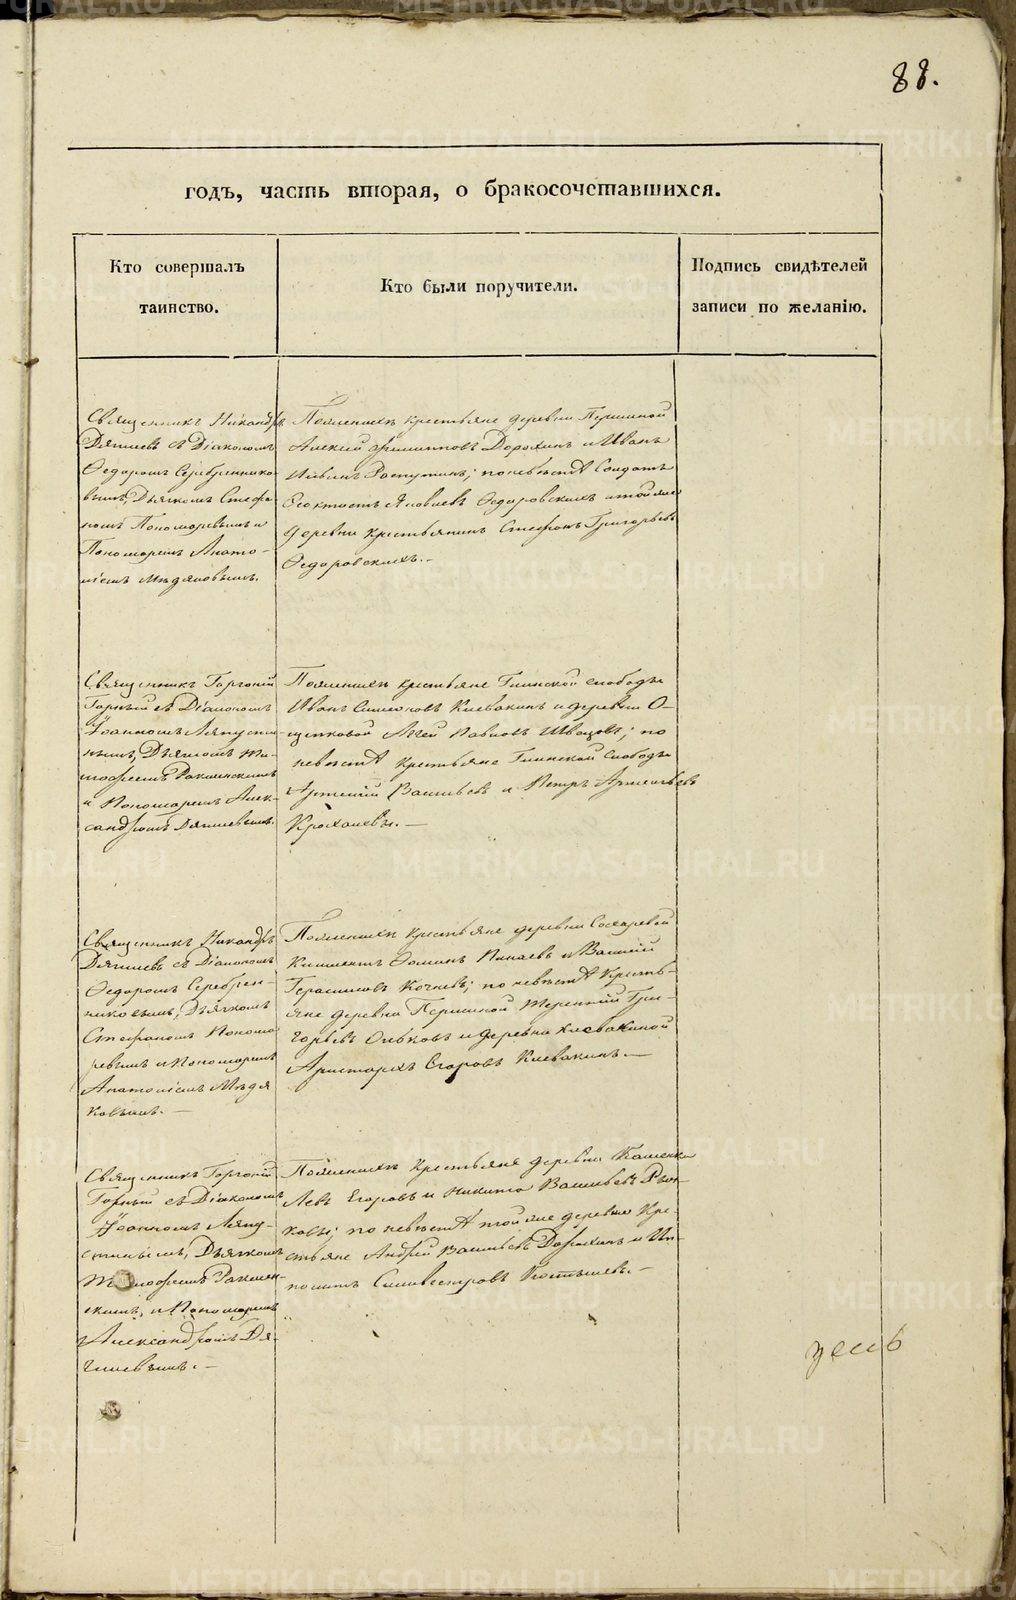 88.
годъ, часть вторая, о бракосочетавшихся.
Кто совершалъ
таинство.
Кто были поручители.
Подпись свидѣтелей
записи по желанію.
Священникъ Никандръ
Дягилевъ съ Діакономъ
Ѳедоромъ Серебреннико-
вымъ, Дьячкомъ Стефа-
номъ Пономаревымъ и
Пономаремъ Анато-
ліемъ
По женихѣ крестьяне деревни Першиной
Алексѣй Дорохинъ и Иванъ
Распутинъ; по невѣстѣ Солдатъ
Яковлевъ Ѳедоровскихъ и той же
деревни крестьянинъ Стефанъ Григорьевъ
Ѳедоровскихъ.
Священникъ Горгоній
Горный съ Діакономъ
Іоанномъ Ляпусти-
нымъ, Дьячкомъ Ти-
моѳеемъ
и Пономаремъ Алек-
сандромъ Дягилевымъ.
По женихѣ крестьяне Глинской слободы
Иванъ Симеоновъ Клевакинъ и деревни О-
Павловъ Швецовъ; по
невѣстѣ крестьяне Глинской Слободы
Артемій Васильевъ и Петръ Артемьевъ
Крохалевы.
Священникъ Никандръ
Дягилевъ съ Діакономъ
Ѳедоромъ Серебрен-
никовымъ, Дьячкомъ
Стефаномъ Понома
ревымъ и Пономаремъ
Анатоліемъ
По женихѣ крестьяне деревни Сохаревой
Климентъ Ѳоминъ Минаевъ и Василій
Герасимовъ Кочневъ; по невѣстѣ Кресть-
яне деревни Першиной Терентій Гри-
горьевъ и деревни Клевакиной
Аристархъ Егоровъ Клевакинъ.
Священникъ Горгоній
Горный съ Діакономъ
Іоанномъ Ляпу-
стинымъ, Дьячкомъ
Тимоѳеемъ
и Пономаремъ
Александромъ Дя-
гилевымъ.
По женихѣ Крестьяне деревни
Левъ Егоровъ и Никита Васильевъ Рыч-
ковы; по невѣстѣ той же деревни Кре-
стьяне Андрей Васильевъ Дорохинъ и Ип-
политъ Сильвестровъ Костылевъ.